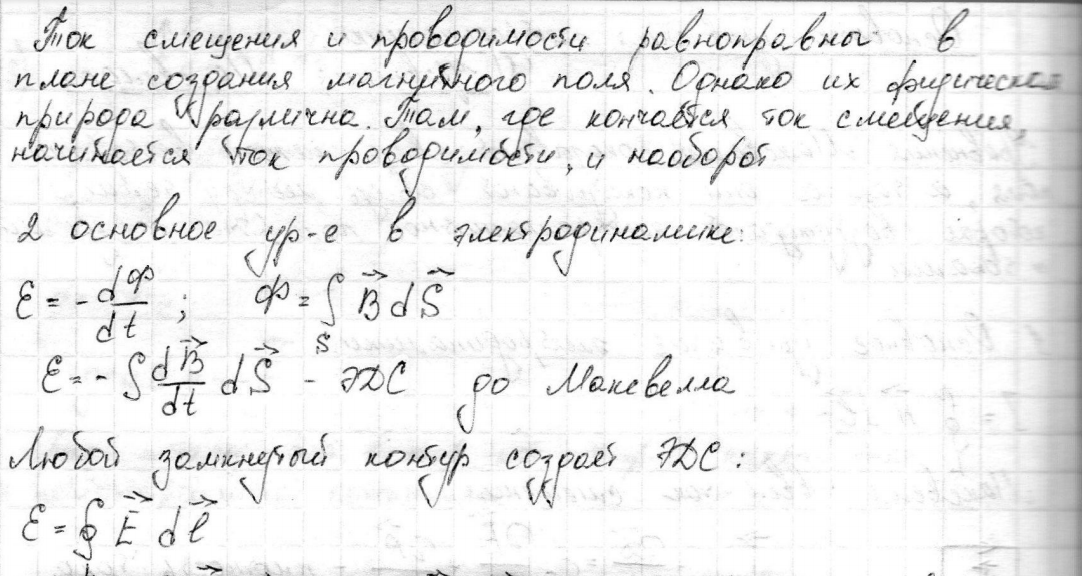 Ток смещения и проводимости равноправны в
плане создания магнитного поля. Однако их физическая
природа различна. Там, где кончается ток смещения,
начинается ток проводимости, и наоборот
2 основное ур-е в электродинамике:
ℰ = - dФ/dt ; Ф = ∫_S B⃗ dS⃗
ℰ = - ∫ dB⃗/dt dS⃗ - ЭДС до Максвелла
Любой замкнутый контур создаёт ЭДС:
ℰ = ∮ E⃗ dl⃗